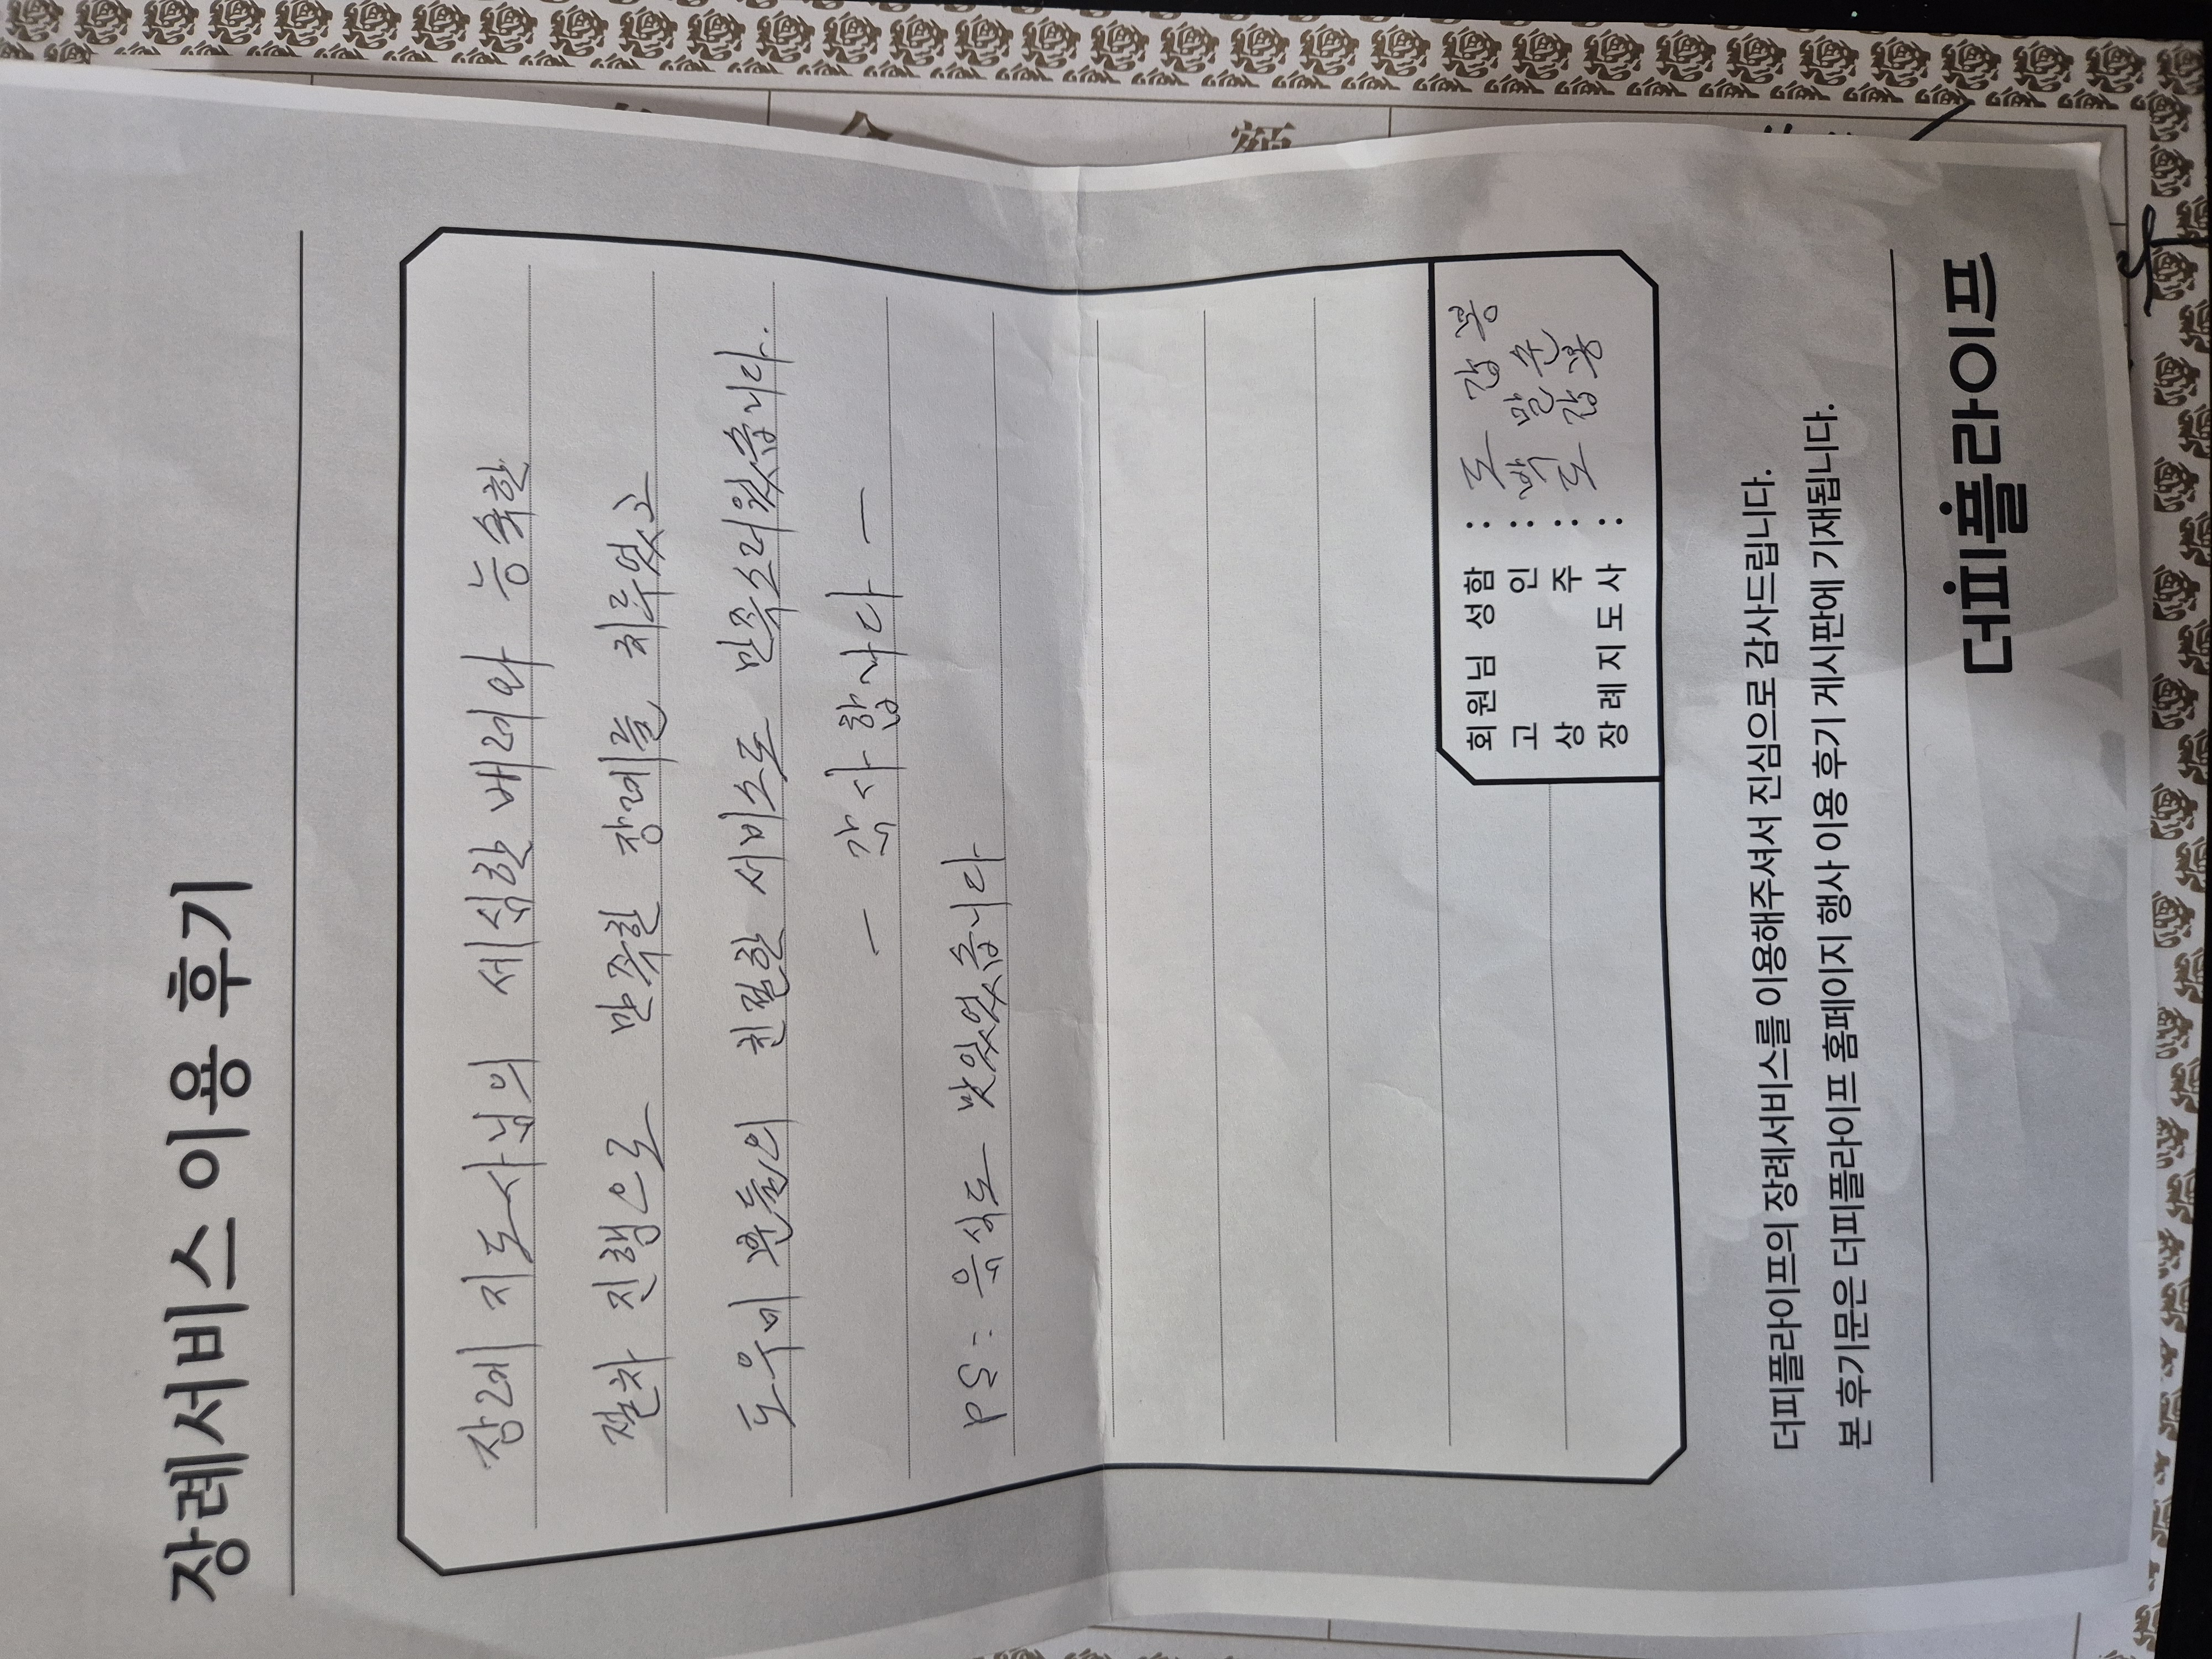 장례서비스 이용 후기
장례 지도사님의 세심한 배려와 능숙한
절차 진행으로 만족한 장례를 치루었고
도우미 분들의 친절한 서비스도 만족스러웠습니다.
— 감사합니다 —
PS: 음식도 맛있었습니다
회원님 성함 : 도 갑 봉
고 인 : 박 말 순
상 주 : 도 갑 봉
장례지도사 :
더피플라이프의 장례서비스를 이용해주셔서 진심으로 감사드립니다.
본 후기문은 더피플라이프 홈페이지 행사 이용 후기 게시판에 기재됩니다.
더피플라이프
金
額